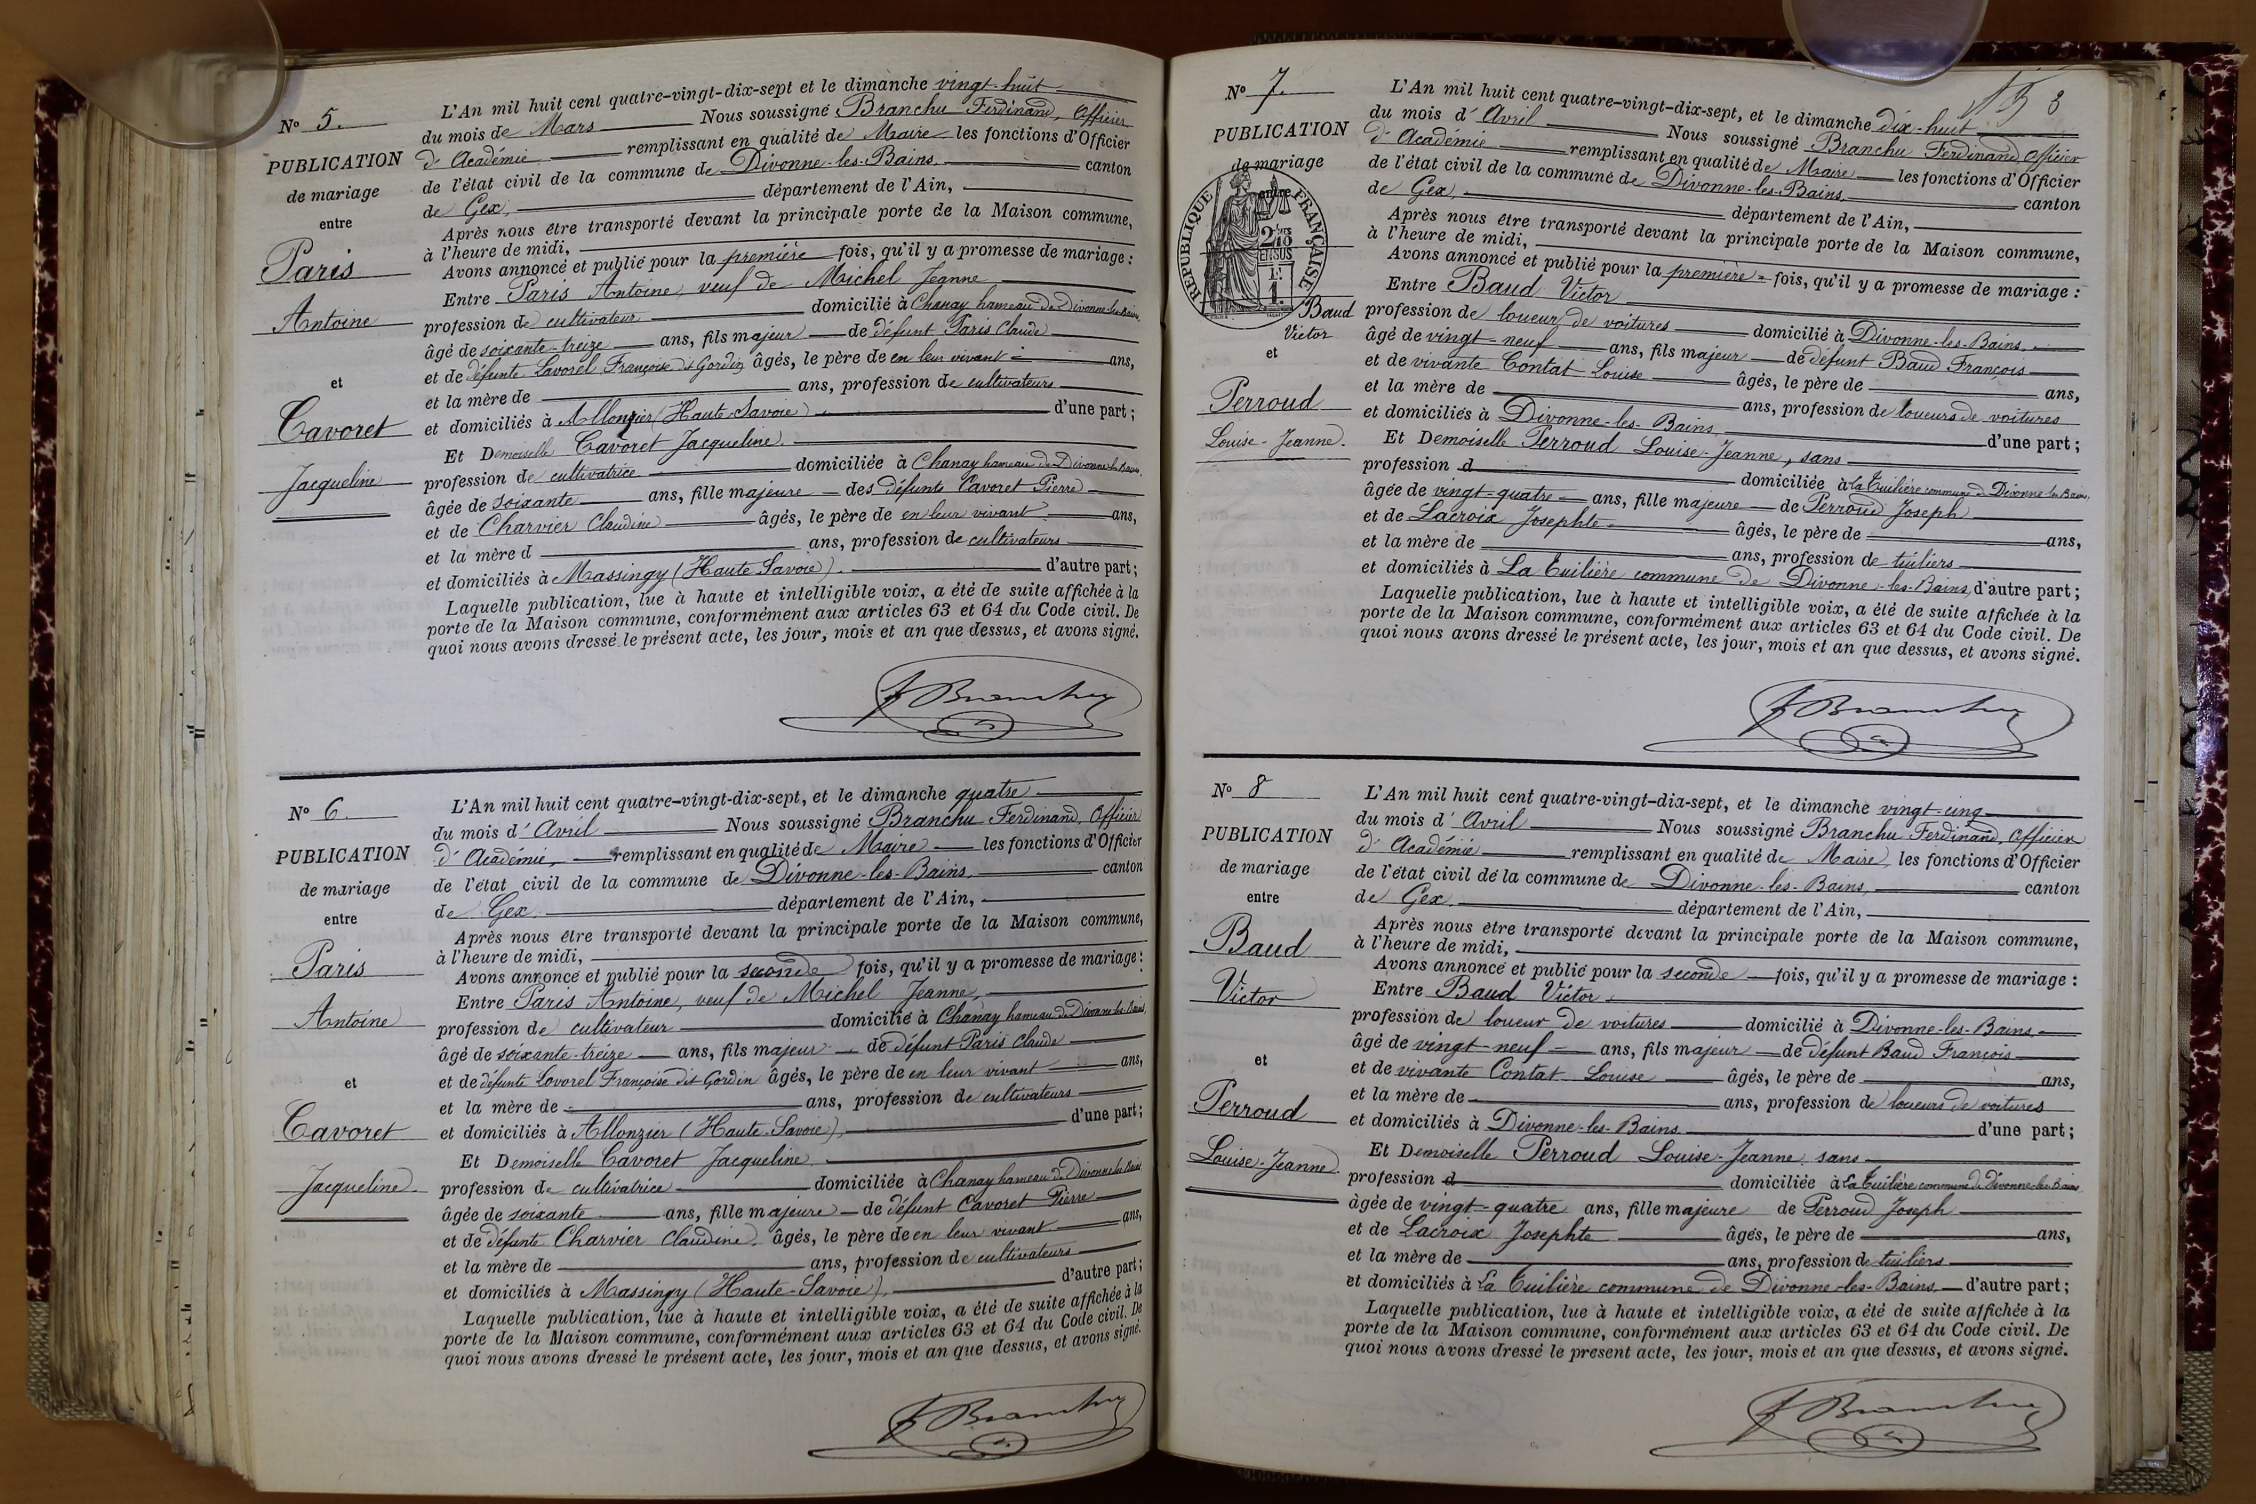 N° 5.
PUBLICATION
de mariage
entre
Paris
Antoine
et
Cavoret
Jacqueline
L'An mil huit cent quatre-vingt-dix-sept et le dimanche vingt-huit
du mois de Mars Nous soussigné Branchu Ferdinand, Officier
d'Académie remplissant en qualité de Maire les fonctions d'Officier
de l'état civil de la commune de Divonne-les-Bains canton
de Gex, département de l'Ain,
Après nous être transporté devant la principale porte de la Maison commune,
à l'heure de midi,
Avons annoncé et publié pour la première fois, qu'il y a promesse de mariage :
Entre Paris Antoine, veuf de Michel Jeanne
profession de cultivateur domicilié à Chanay hameau de Divonne-les-Bains
âgé de soixante-treize ans, fils majeur de défunt Paris Claude
et de défunte Lavorel Françoise dit Gordin âgés, le père de en leur vivant ans,
et la mère de ans, profession de cultivateurs
et domiciliés à Allonzier (Haute-Savoie) d'une part ;
Et Demoiselle Cavoret Jacqueline
profession de cultivatrice domiciliée à Chanay hameau de Divonne-les-Bains
âgée de soixante ans, fille majeure des défunts Cavoret Pierre
et de Charvier Claudine âgés, le père de en leur vivant ans,
et la mère d ans, profession de cultivateurs
et domiciliés à Massingy (Haute Savoie). d'autre part ;
Laquelle publication, lue à haute et intelligible voix, a été de suite affichée à la
porte de la Maison commune, conformément aux articles 63 et 64 du Code civil. De
quoi nous avons dressé le présent acte, les jour, mois et an que dessus, et avons signé.
F Branchu
N° 6.
PUBLICATION
de mariage
entre
Paris
Antoine
et
Cavoret
Jacqueline
L'An mil huit cent quatre-vingt-dix-sept, et le dimanche quatre
du mois d'Avril Nous soussigné Branchu Ferdinand, Officier
d'Académie, remplissant en qualité de Maire les fonctions d'Officier
de l'état civil de la commune de Divonne-les-Bains, canton
de Gex département de l'Ain,
Après nous être transporté devant la principale porte de la Maison commune,
à l'heure de midi,
Avons annoncé et publié pour la seconde fois, qu'il y a promesse de mariage :
Entre Paris Antoine, veuf de Michel Jeanne,
profession de cultivateur domicilié à Chanay hameau de Divonne-les-Bains
âgé de soixante-treize ans, fils majeur de défunt Paris Claude
et de défunte Lovorel Françoise dit Gordin âgés, le père de en leur vivant ans,
et la mère de ans, profession de cultivateurs
et domiciliés à Allonzier (Haute-Savoie), d'une part ;
Et Demoiselle Cavoret Jacqueline
profession de cultivatrice domiciliée à Chanay hameau de Divonne-les-Bains
âgée de soixante ans, fille majeure de défunt Cavoret Pierre
et de défunte Charvier Claudine âgés, le père de en leur vivant ans,
et la mère de ans, profession de cultivateurs
et domiciliés à Massingy (Haute-Savoie), d'autre part ;
Laquelle publication, lue à haute et intelligible voix, a été de suite affichée à la
porte de la Maison commune, conformément aux articles 63 et 64 du Code civil. De
quoi nous avons dressé le présent acte, les jour, mois et an que dessus, et avons signé.
F Branchu
3
N° 7.
PUBLICATION
de mariage
entre
RÉPUBLIQUE FRANÇAISE
2/10 EN SUS
Baud
Victor
et
Perroud
Louise-Jeanne.
L'An mil huit cent quatre-vingt-dix-sept, et le dimanche dix-huit
du mois d'Avril Nous soussigné Branchu Ferdinand Officier
d'Académie remplissant en qualité de Maire les fonctions d'Officier
de l'état civil de la commune de Divonne-les-Bains canton
de Gex, département de l'Ain,
Après nous être transporté devant la principale porte de la Maison commune,
à l'heure de midi,
Avons annoncé et publié pour la première fois, qu'il y a promesse de mariage :
Entre Baud Victor
profession de loueur de voitures domicilié à Divonne-les-Bains
âgé de vingt-neuf ans, fils majeur de défunt Baud François
et de vivante Contat Louise âgés, le père de ans,
et la mère de ans, profession de loueurs de voitures
et domiciliés à Divonne-les-Bains d'une part ;
Et Demoiselle Perroud Louise-Jeanne, sans
profession d domiciliée à la Tuilière commune de Divonne-les-Bains,
âgée de vingt-quatre ans, fille majeure de Perroud Joseph
et de Lacroix Josephte âgés, le père de ans,
et la mère de ans, profession de tuiliers
et domiciliés à La Tuilière commune de Divonne-les-Bains, d'autre part ;
Laquelle publication, lue à haute et intelligible voix, a été de suite affichée à la
porte de la Maison commune, conformément aux articles 63 et 64 du Code civil. De
quoi nous avons dressé le présent acte, les jour, mois et an que dessus, et avons signé.
F Branchu
N° 8
PUBLICATION
de mariage
entre
Baud
Victor
et
Perroud
Louise-Jeanne.
L'An mil huit cent quatre-vingt-dix-sept, et le dimanche vingt-cinq
du mois d'Avril Nous soussigné Branchu Ferdinand, Officier
d'Académie remplissant en qualité de Maire les fonctions d'Officier
de l'état civil de la commune de Divonne-les-Bains, canton
de Gex. département de l'Ain,
Après nous être transporté devant la principale porte de la Maison commune,
à l'heure de midi,
Avons annoncé et publié pour la seconde fois, qu'il y a promesse de mariage :
Entre Baud Victor
profession de loueur de voitures domicilié à Divonne-les-Bains
âgé de vingt-neuf ans, fils majeur de défunt Baud François
et de vivante Contat Louise âgés, le père de ans,
et la mère de ans, profession de loueurs de voitures
et domiciliés à Divonne-les-Bains d'une part ;
Et Demoiselle Perroud Louise-Jeanne sans
profession d domiciliée à La Tuilière commune de Divonne-les-Bains
âgée de vingt-quatre ans, fille majeure de Perroud Joseph
et de Lacroix Josephte âgés, le père de ans,
et la mère de ans, profession de tuiliers
et domiciliés à La Tuilière commune de Divonne-les-Bains d'autre part ;
Laquelle publication, lue à haute et intelligible voix, a été de suite affichée à la
porte de la Maison commune, conformément aux articles 63 et 64 du Code civil. De
quoi nous avons dressé le présent acte, les jour, mois et an que dessus, et avons signé.
F Branchu